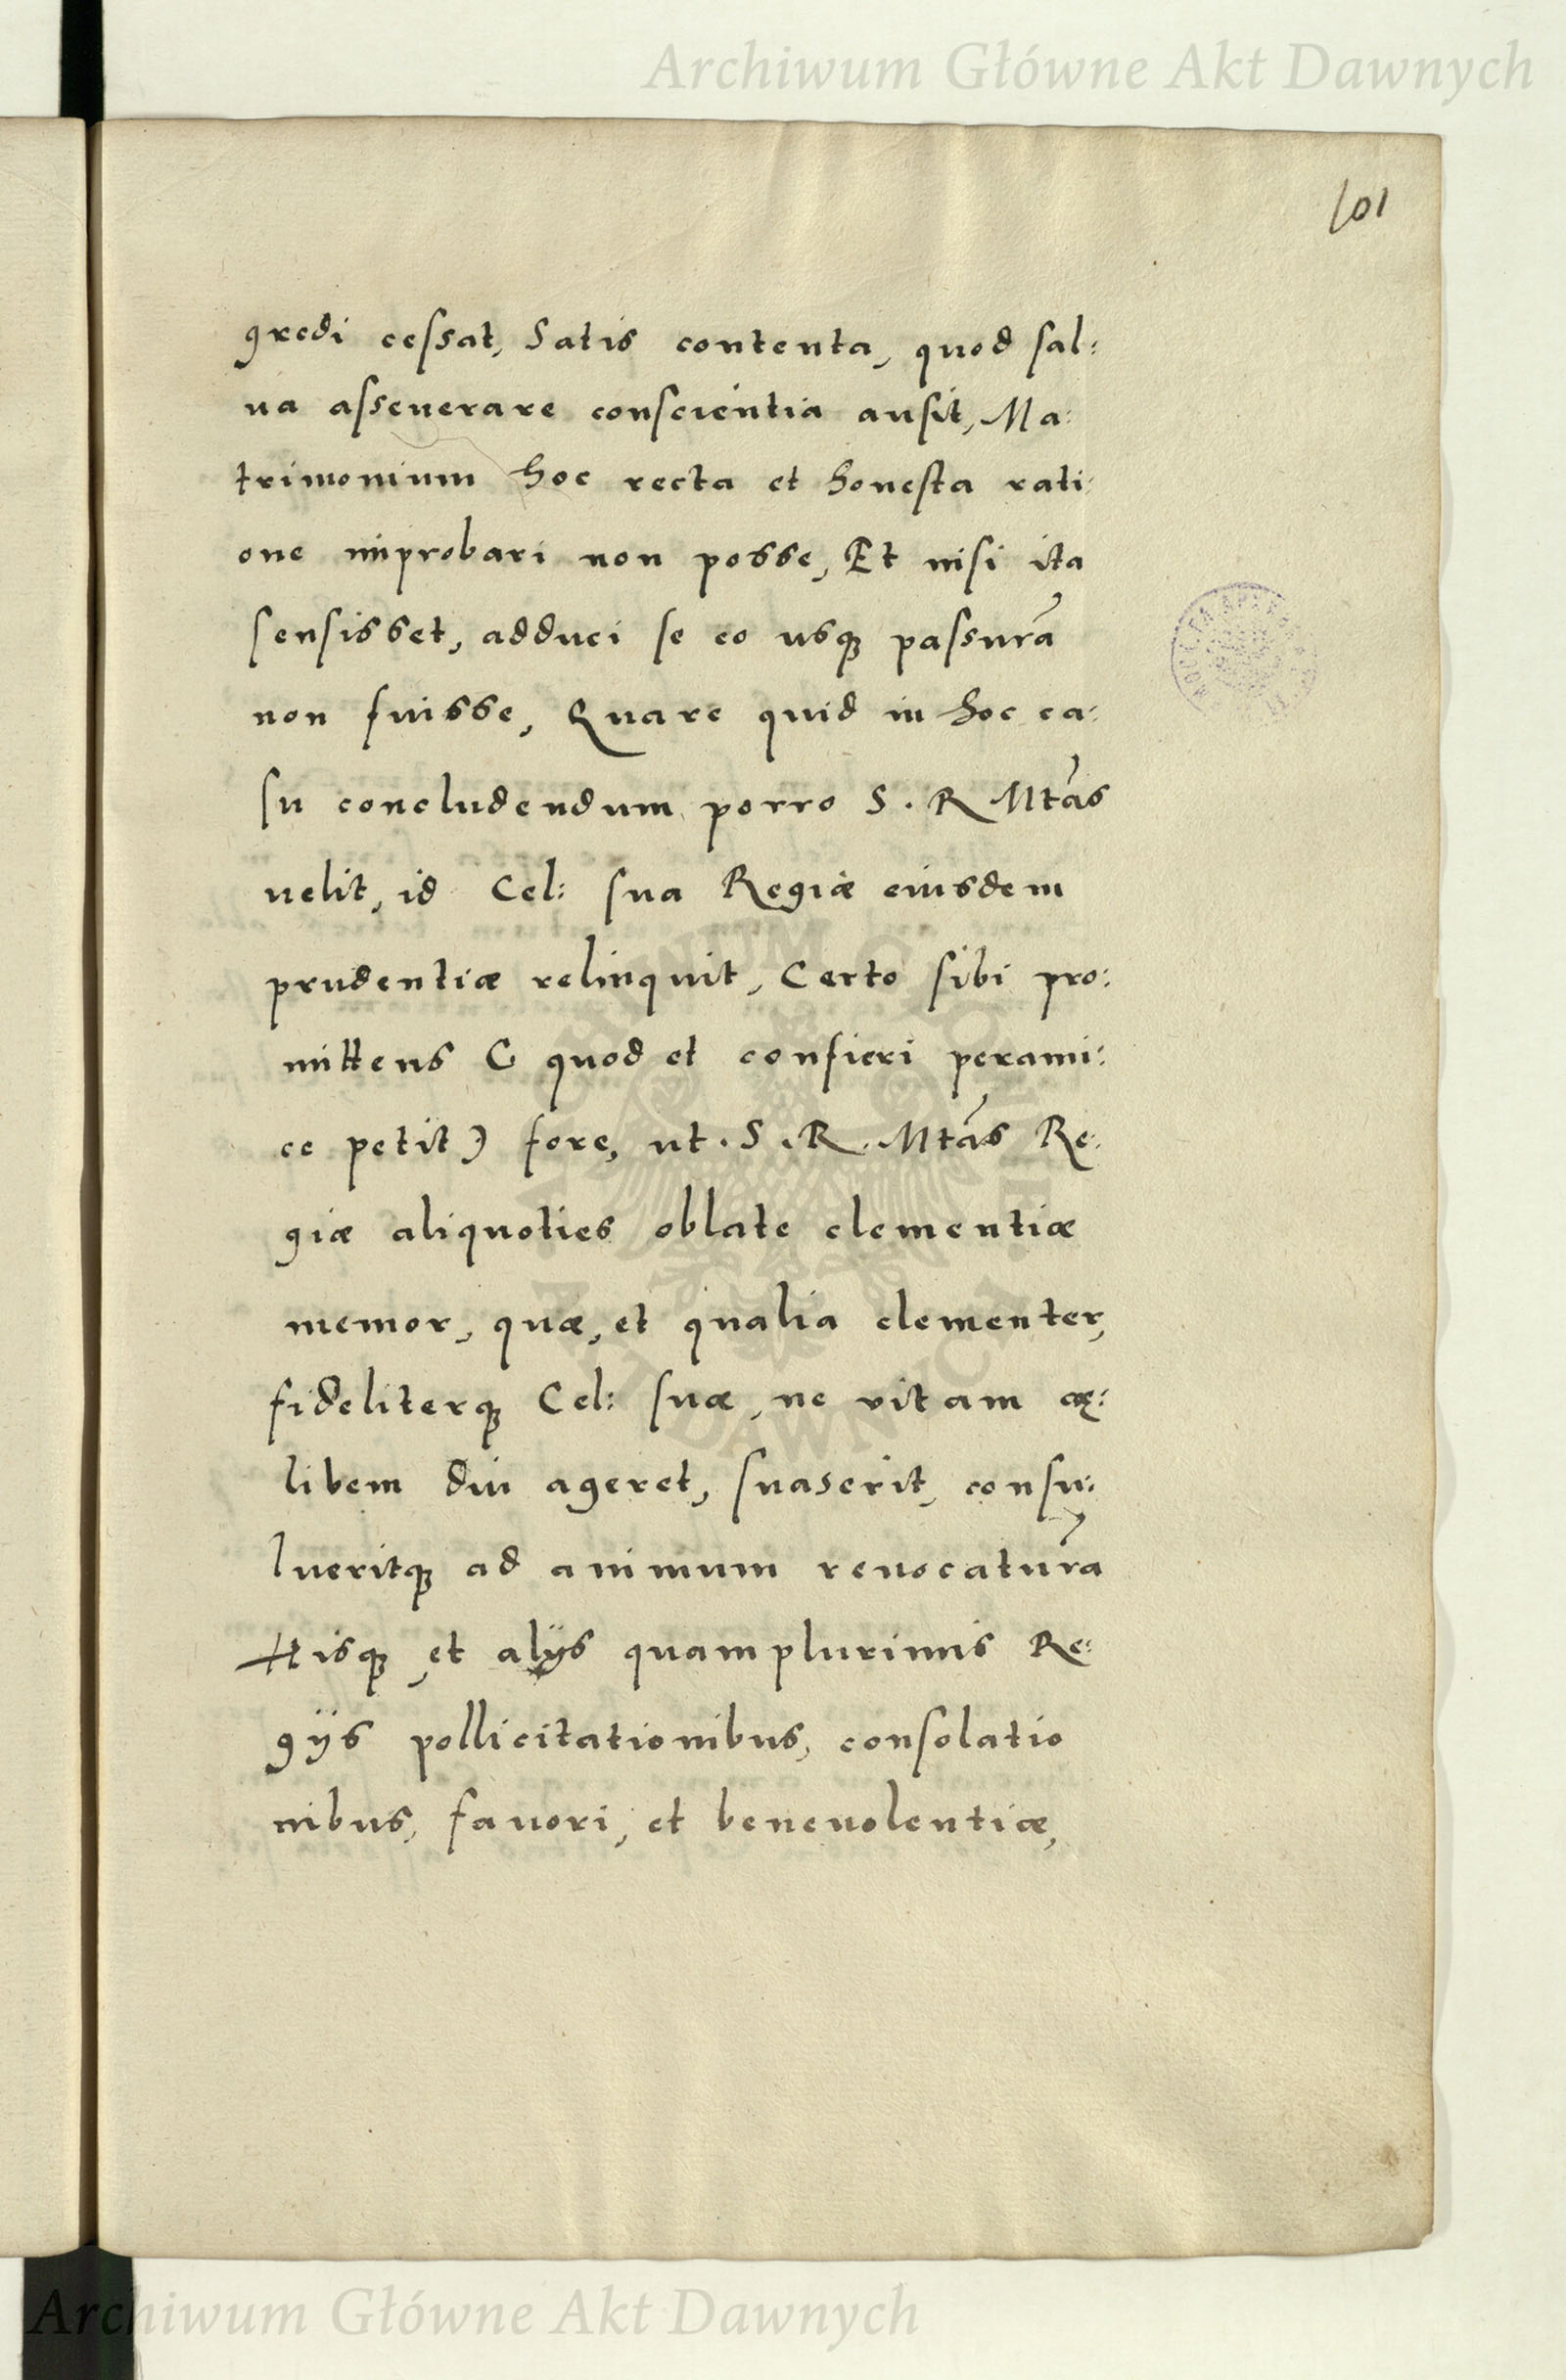 Archiwum Główne Akt Dawnych
101
gredi cessat, Satis contenta, quod sal:
ua asseuerare conscientia ausit, Ma:
trimonium hoc recta et honesta rati:
one improbari non posse, Et nisi ita
sensisset, adduci se eo usq₃ passurã
non fuisse, Quare quid in hoc ca:
su concludendum porro S. R Mtãs
uelit, id Cel: sua Regiæ eiusdem
prudentiæ relinquit, Certo sibi pro:
mittens ( quod et confieri perami:
ce petit) fore, ut. S. R. Mtãs Re:
giæ aliquoties oblate clementiæ
memor, quæ, et qualia clementer,
fideliterq₃ Cel: suæ, ne vitam cę:
libem diu ageret, suaserit, consu:
lueritq₃ ad animum reuocaturã
Hisq₃ et alijs quamplurimis Re:
gijs pollicitationibus, consolatio
nibus, fauori, et beneuolentiæ,
ARCHIWUM GŁÓWNE AKT DAWNYCH
Archiwum Główne Akt Dawnych